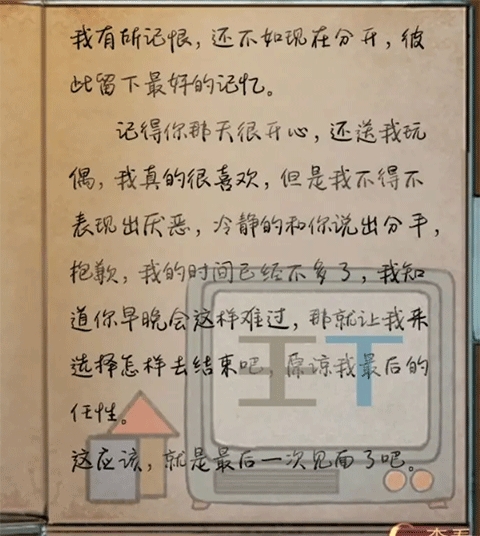 我有所记恨，还不如现在分开，彼
此留下最好的记忆。
记得你那天很开心，还送我玩
偶，我真的很喜欢，但是我不得不
表现出厌恶，冷静的和你说出分手，
抱歉，我的时间已经不多了，我知
道你早晚会这样难过，那就让我来
选择怎样去结束吧，原谅我最后的
任性。
这应该，就是最后一次见面了吧。